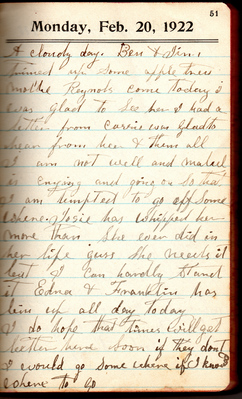 51
Monday, Feb. 20, 1922
A cloudy day. Ben & Jim
trimed up some apple trees
mollie Reynols come today I
was glad to see her I had a
letter from Carrie was glad to
hear from her & them all
I am not well and
is crying and going on so that
I am tempted to go off some
where. Josie has whipped her
more than she ever did in
her life guss she needs it
but I can hardly stand
it Edna & Franklin has
bin up all day today
I do hope that times will get
better here soon if they dont
I would go some where if I knew
where to go